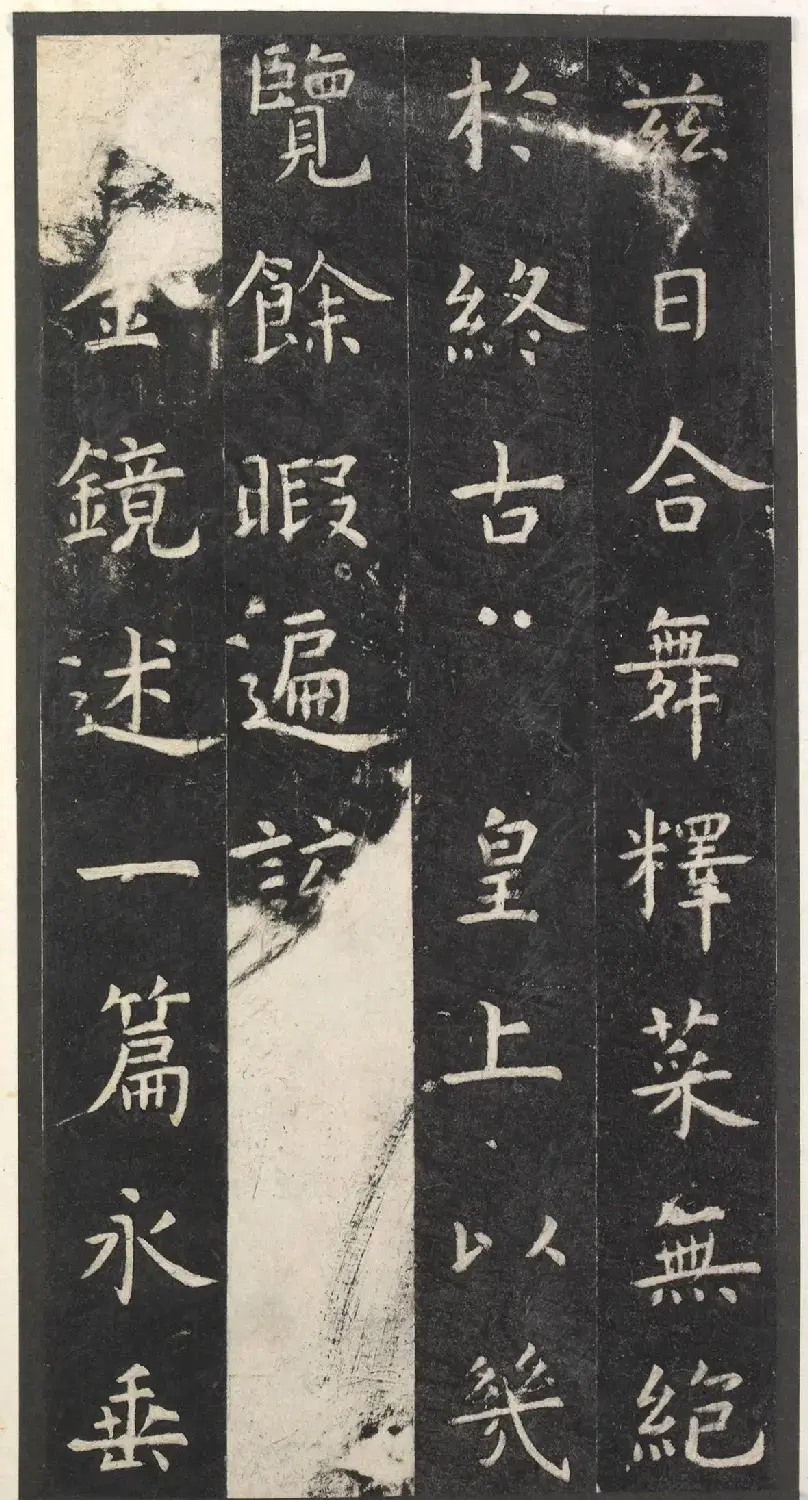 兹日合舞釋菜無絕
於終古皇上以幾
覽餘暇遍
金鏡述一篇永垂